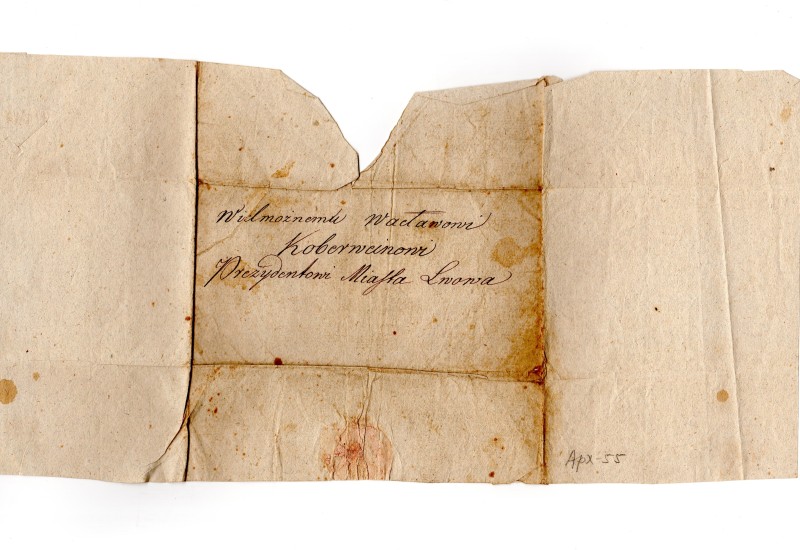 Wielmożnemu Wacławowi
Koberweinowi
Prezydentowi Miasta Lwowa
Арх-55